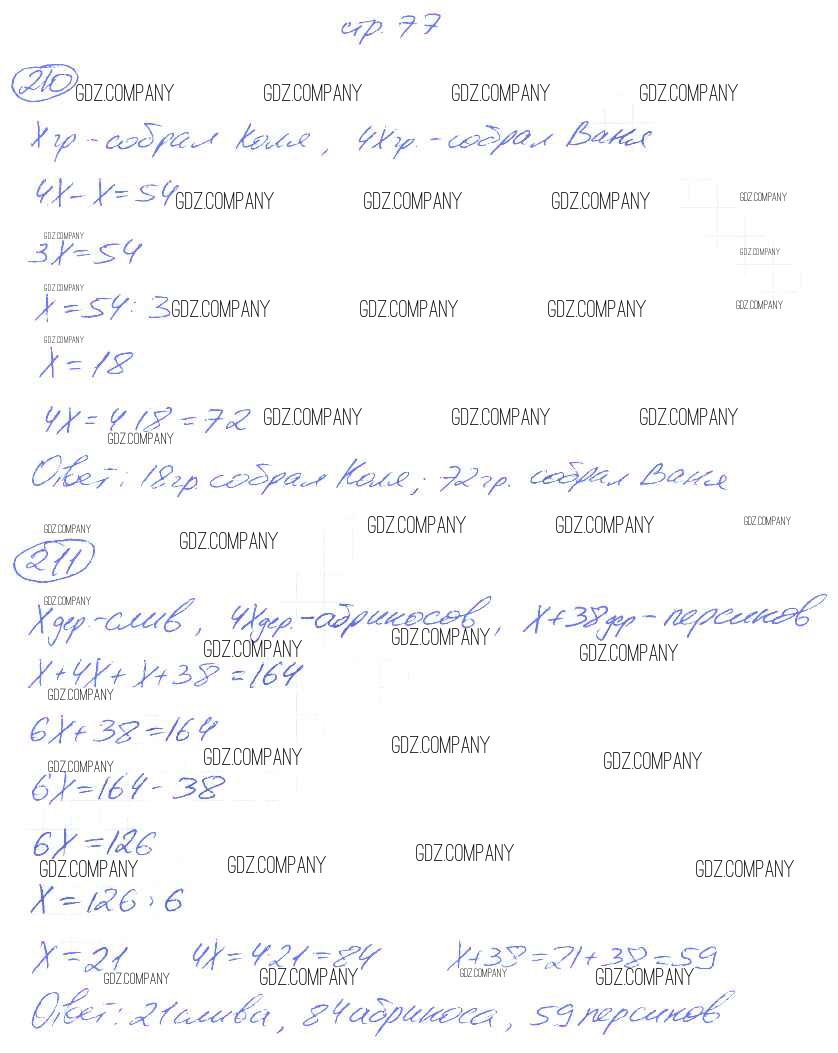 стр. 77
210 GDZ.COMPANY GDZ.COMPANY GDZ.COMPANY GDZ.COMPANY
Xгр - собрал Коля, 4Xгр. - собрал Ваня
4X - X = 54 GDZ.COMPANY GDZ.COMPANY GDZ.COMPANY GDZ.COMPANY
GDZ.COMPANY
3X = 54 GDZ.COMPANY
GDZ.COMPANY
X = 54 : 3 GDZ.COMPANY GDZ.COMPANY GDZ.COMPANY GDZ.COMPANY
GDZ.COMPANY
X = 18
4X = 4·18 = 72 GDZ.COMPANY GDZ.COMPANY GDZ.COMPANY
GDZ.COMPANY
Ответ: 18 гр. собрал Коля; 72 гр. собрал Ваня
GDZ.COMPANY GDZ.COMPANY GDZ.COMPANY GDZ.COMPANY GDZ.COMPANY
211
GDZ.COMPANY
Xдер. - слив, 4Xдер. - абрикосов, X + 38 дер - персиков
GDZ.COMPANY GDZ.COMPANY GDZ.COMPANY
X + 4X + X + 38 = 164
GDZ.COMPANY
6X + 38 = 164
GDZ.COMPANY GDZ.COMPANY GDZ.COMPANY GDZ.COMPANY
6X = 164 - 38
6X = 126
GDZ.COMPANY GDZ.COMPANY GDZ.COMPANY GDZ.COMPANY
X = 126 : 6
X = 21 4X = 4·21 = 84 X + 38 = 21 + 38 = 59
GDZ.COMPANY GDZ.COMPANY GDZ.COMPANY GDZ.COMPANY
Ответ: 21 слива, 84 абрикоса, 59 персиков